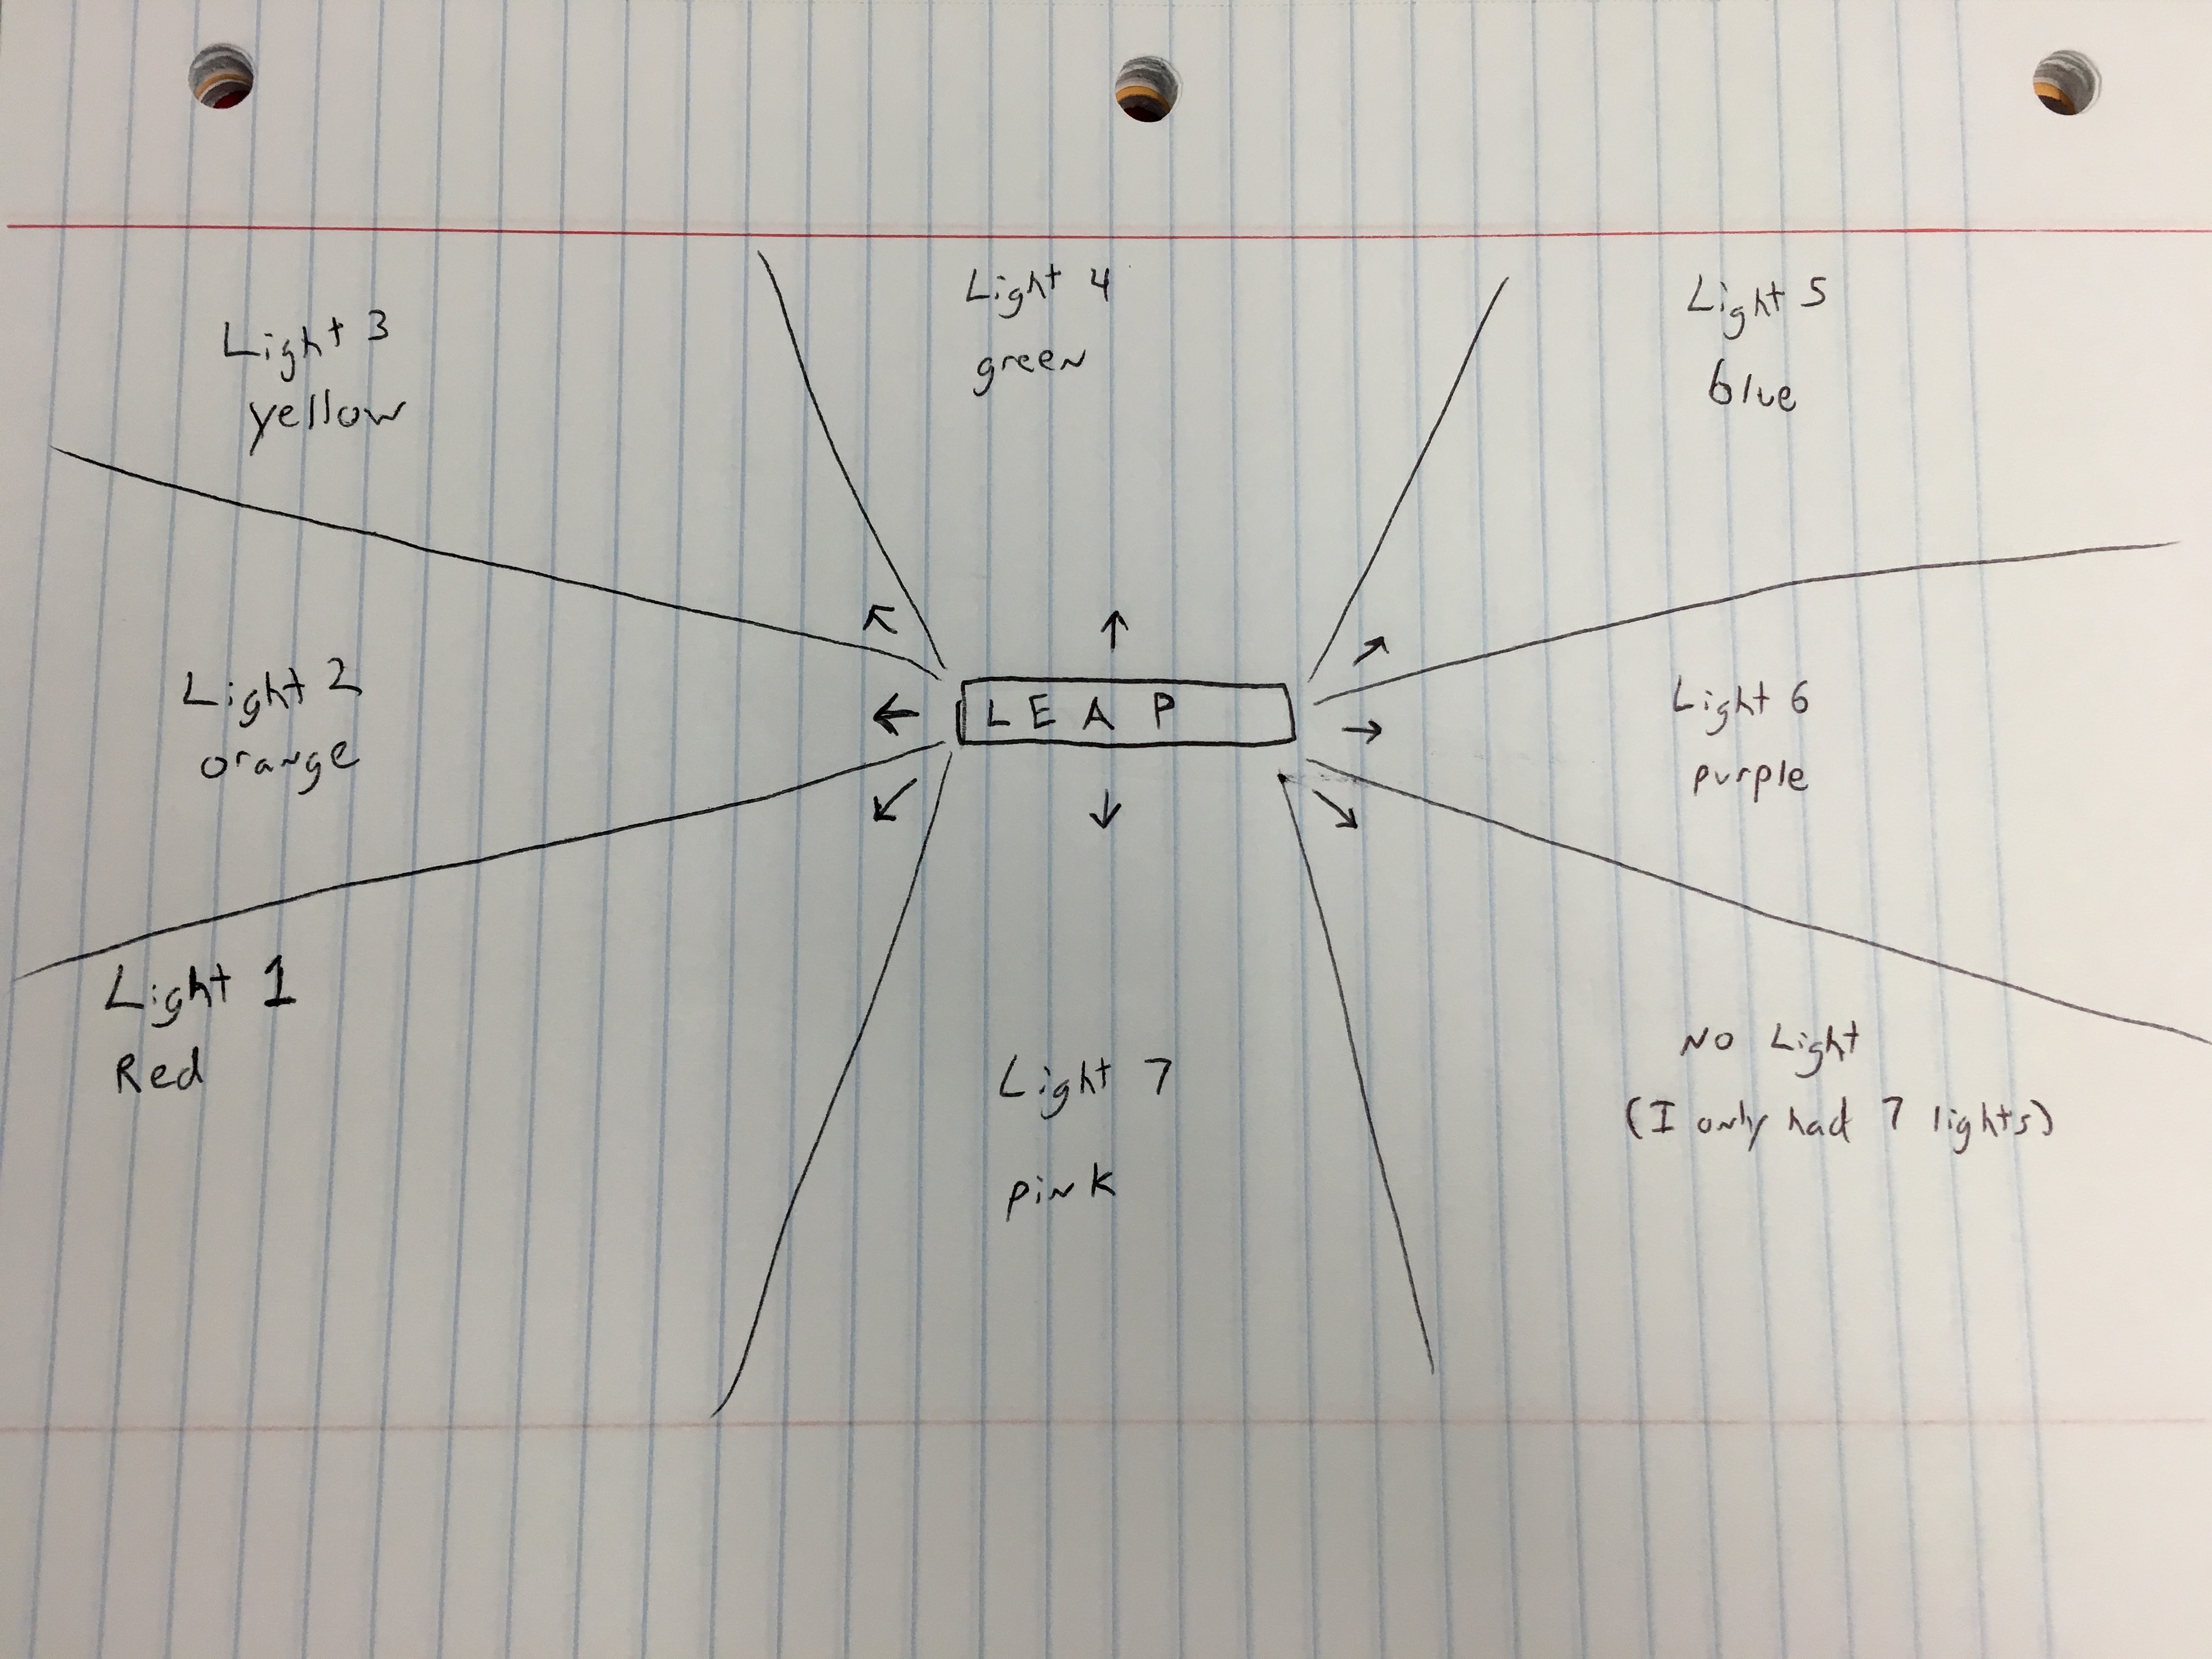 Light 3
yellow
Light 4
green
Light 5
blue
Light 2
orange
LEAP
Light 6
purple
Light 1
Red
Light 7
pink
No Light
(I only had 7 lights)